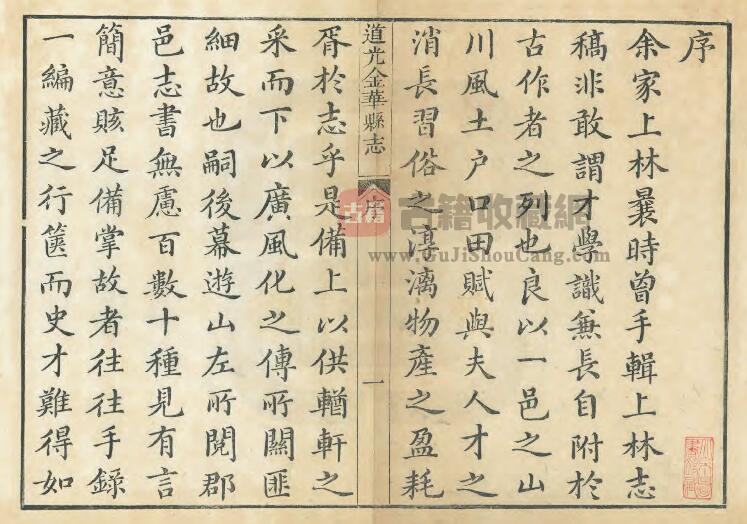 序
余家上林曩時曾手輯上林志
稿非敢謂才學識兼長自附於
古作者之列也良以一邑之山
川風土户口田賦與夫人才之
消長習俗之淳漓物產之盈耗
道光金華縣志
序
一
胥於志乎是備上以供輶軒之
采而下以廣風化之傳所關匪
細故也嗣後幕遊山左所閱郡
邑志書無慮百數十種見有言
簡意賅足備掌故者往往手錄
一編藏之行篋而史才難得如
古籍 古籍收藏網
www.GuJiShouCang.com